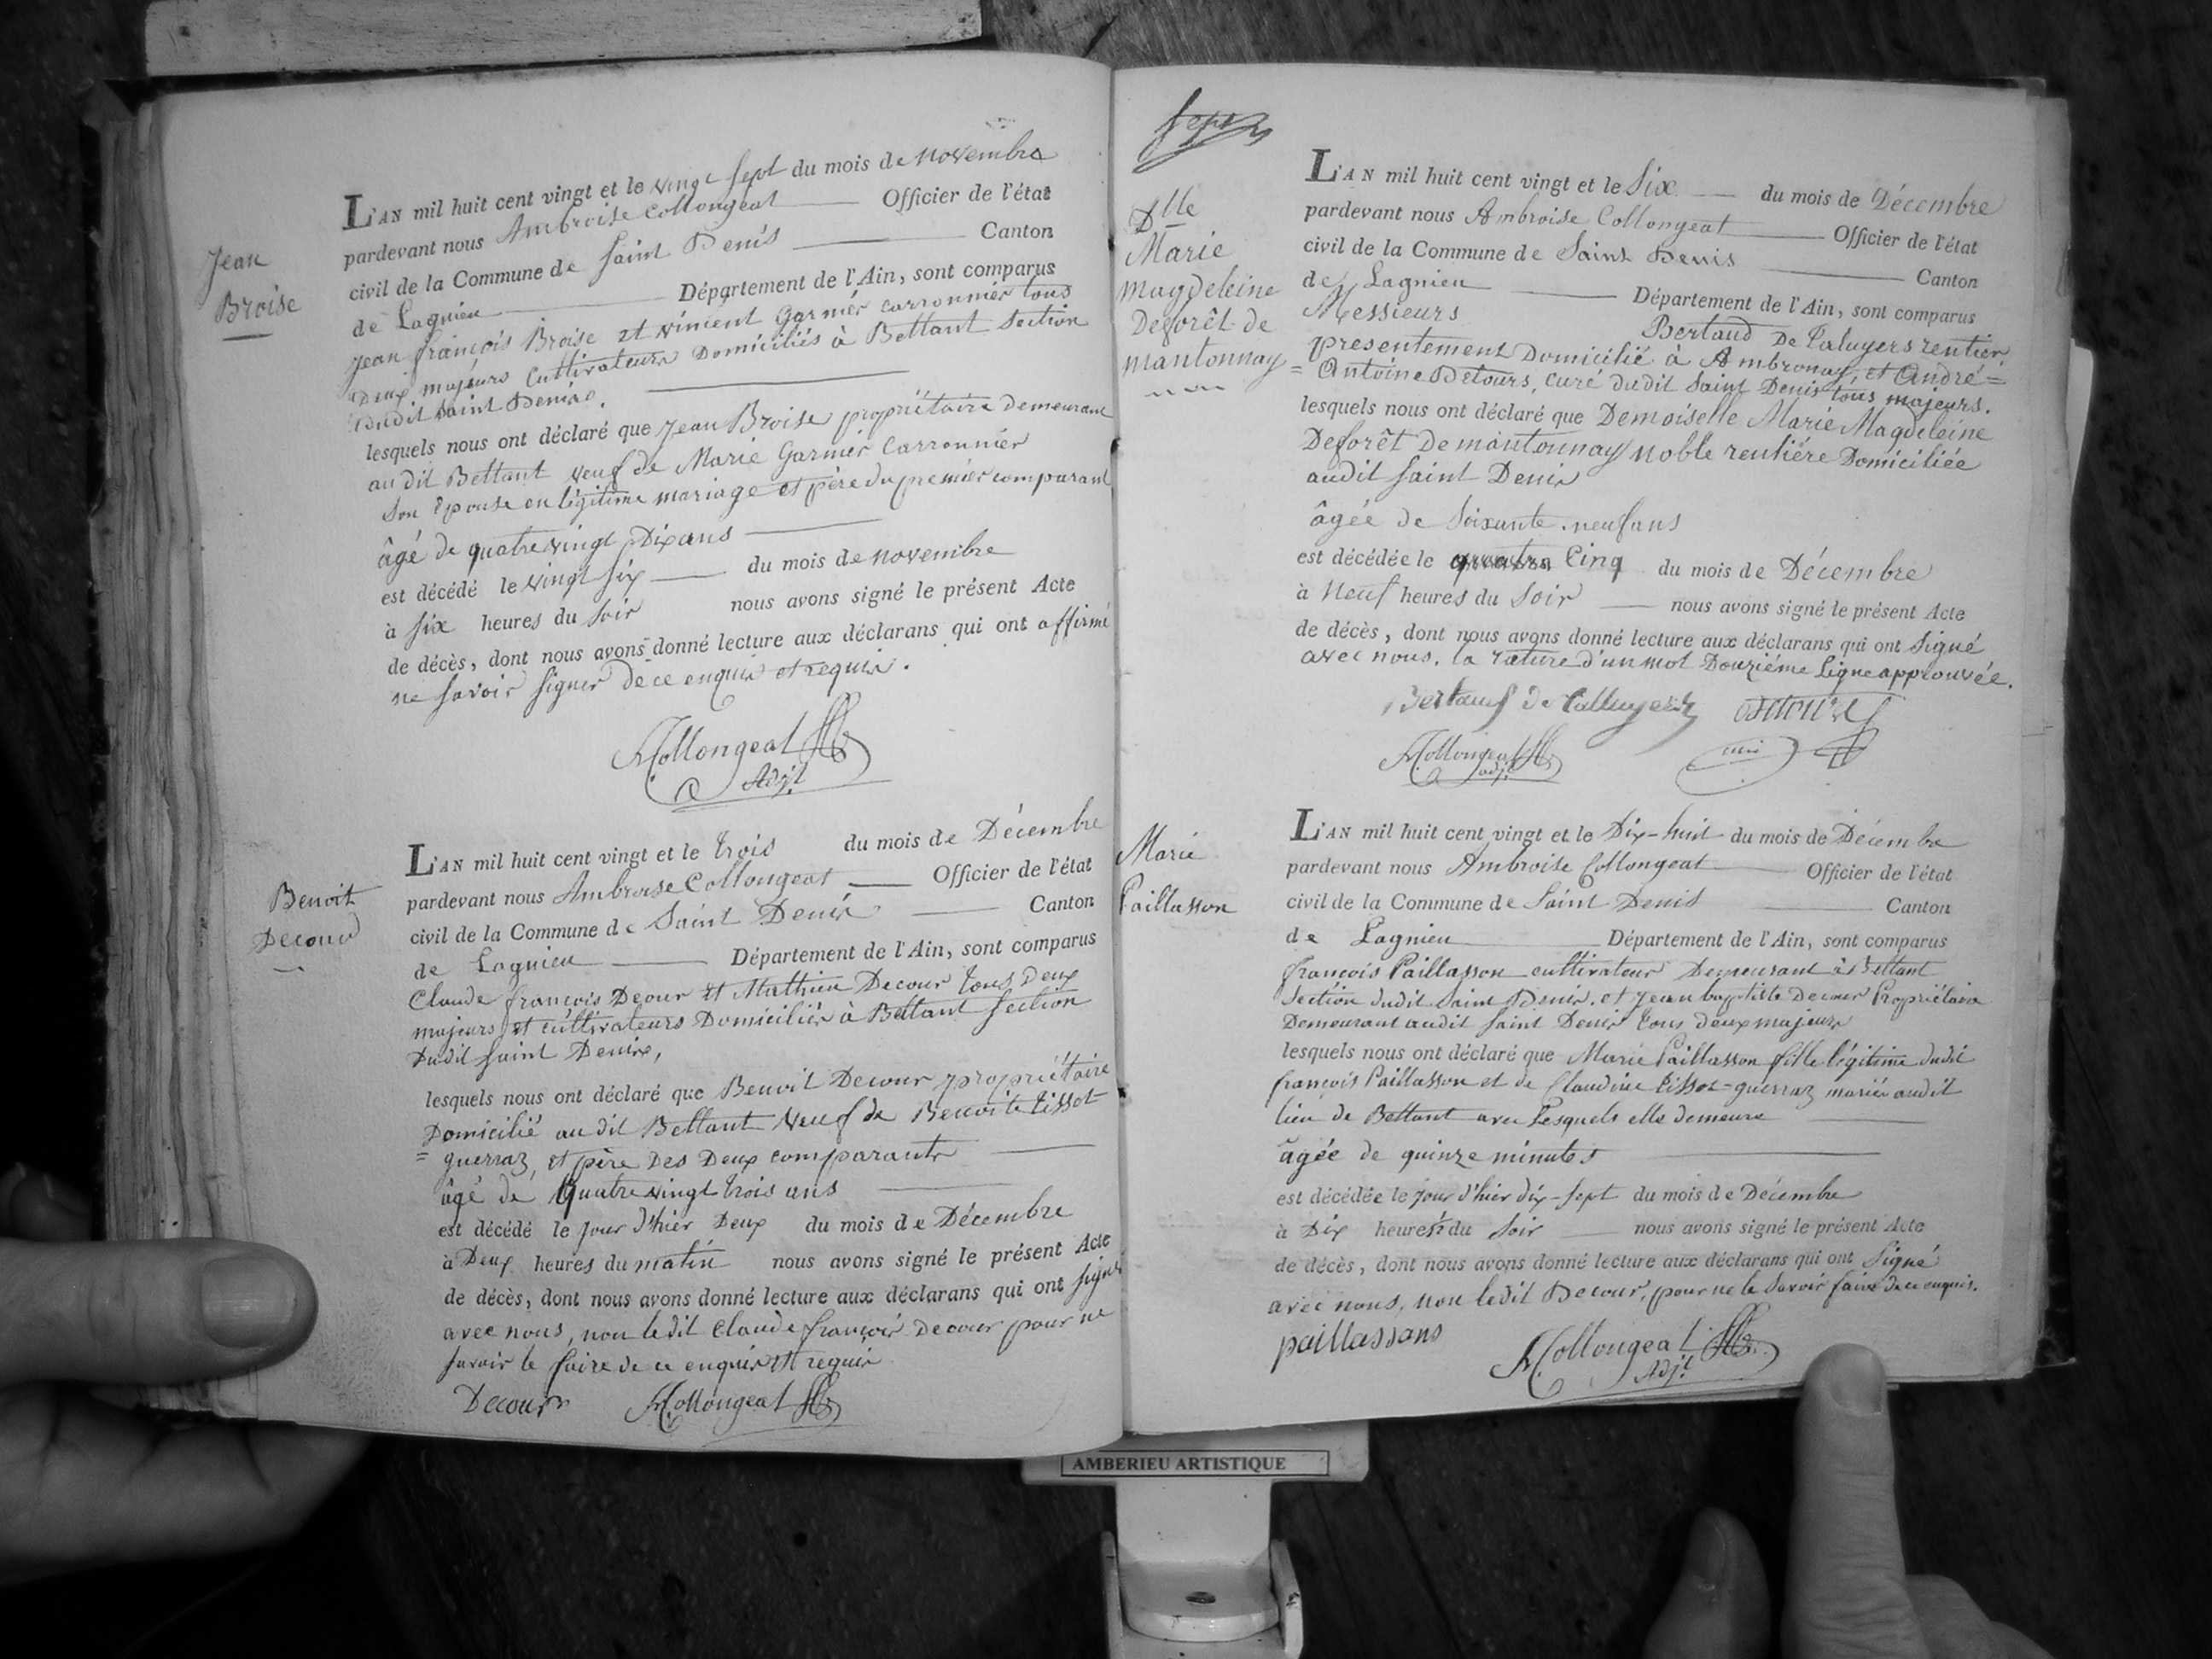 Jean
Broise
L'AN mil huit cent vingt et le vingt sept du mois de Novembre
pardevant nous Ambroise Collongeat Officier de l'état
civil de la Commune de Saint Denis Canton
de Lagnieu Département de l'Ain, sont comparus
Jean françois Broise et Vincent Garnier Carronnier tous
Deux majeurs Cultivateurs Domiciliés à Bettant Section
dudit Saint Denis.
lesquels nous ont déclaré que Jean Broise propriétaire demeurant
au dit Bettant veuf de Marie Garnier Carronnier
son Epouse en légitime mariage et père du premier comparant
âgé de quatre vingt Dix ans
est décédé le vingt six du mois de novembre
à six heures du soir nous avons signé le présent Acte
de décès, dont nous avons donné lecture aux déclarans qui ont affirmé
ne savoir signer de ce enquis et requis.
Collongeat
Adjt
Benoit
Decour
L'AN mil huit cent vingt et le trois du mois de Décembre
pardevant nous Ambroise Collongeat Officier de l'état
civil de la Commune de Saint Denis Canton
de Lagnieu Département de l'Ain, sont comparus
Claude françois Decour et Mathieu Decour tous Deux
majeurs et cultivateurs Domiciliés à Bettant Section
Dudit Saint Denis,
lesquels nous ont déclaré que Benoit Decour propriétaire
Domicilié au dit Bettant Veuf de Benoite tissot
= guerraz, et père Des Deux comparants
âgé de Quatre vingt trois ans
est décédé le jour d'hier Deux du mois de Décembre
à Deux heures du matin nous avons signé le présent Acte
de décès, dont nous avons donné lecture aux déclarans qui ont signé
avec nous, non ledit Claude françois Decour pour ne
savoir le faire de ce enquis et requis
Decour Collongeat
Dlle
Marie
Magdeleine
Deforêt de
mantonnay
L'AN mil huit cent vingt et le Six du mois de Décembre
pardevant nous Ambroise Collongeat Officier de l'état
civil de la Commune de Saint Denis Canton
de Lagnieu Département de l'Ain, sont comparus
Messieurs Bertaud De
presentement Domicilié à Ambronay, et André =
= Antoine Detours, curé dudit Saint Denis tous majeurs.
lesquels nous ont déclaré que Demoiselle Marie Magdeleine
Deforêt De mantonnay noble rentiére Domiciliée
audit Saint Denis
âgée de Soixante-neuf ans
est décédée le quatre Cinq du mois de Décembre
à Neuf heures du Soir nous avons signé le présent Acte
de décès, dont nous avons donné lecture aux déclarans qui ont Signé
avec nous. la rature d'un mot Douziéme Ligne approuvée.
Collongeat
adjt
Marie
Paillasson
L'AN mil huit cent vingt et le Dix-huit du mois de Décembre
pardevant nous Ambroise Collongeat Officier de l'état
civil de la Commune de Saint Denis Canton
de Lagnieu Département de l'Ain, sont comparus
françois Paillasson cultivateur Demeurant à Bettant
Section dudit Saint Denis. et Jean baptiste Decour Propriétaire
Demeurant audit Saint Denis tous deux majeurs
lesquels nous ont déclaré que Marie Paillasson fille légitime dudit
françois Paillasson et de Claudine tissot=guerraz mariés audit
lieu de Bettant avec Lesquels elle demeure
âgée de quinze minutes
est décédée le jour d'hier dix-sept du mois de Décembre
à Dix heures du Soir nous avons signé le présent Acte
de décès, dont nous avons donné lecture aux déclarans qui ont Signé
avec nous, non ledit Decour, pour ne le Savoir faire de ce enquis.
paillassans Collongeat
Adjt
AMBERIEU ARTISTIQUE